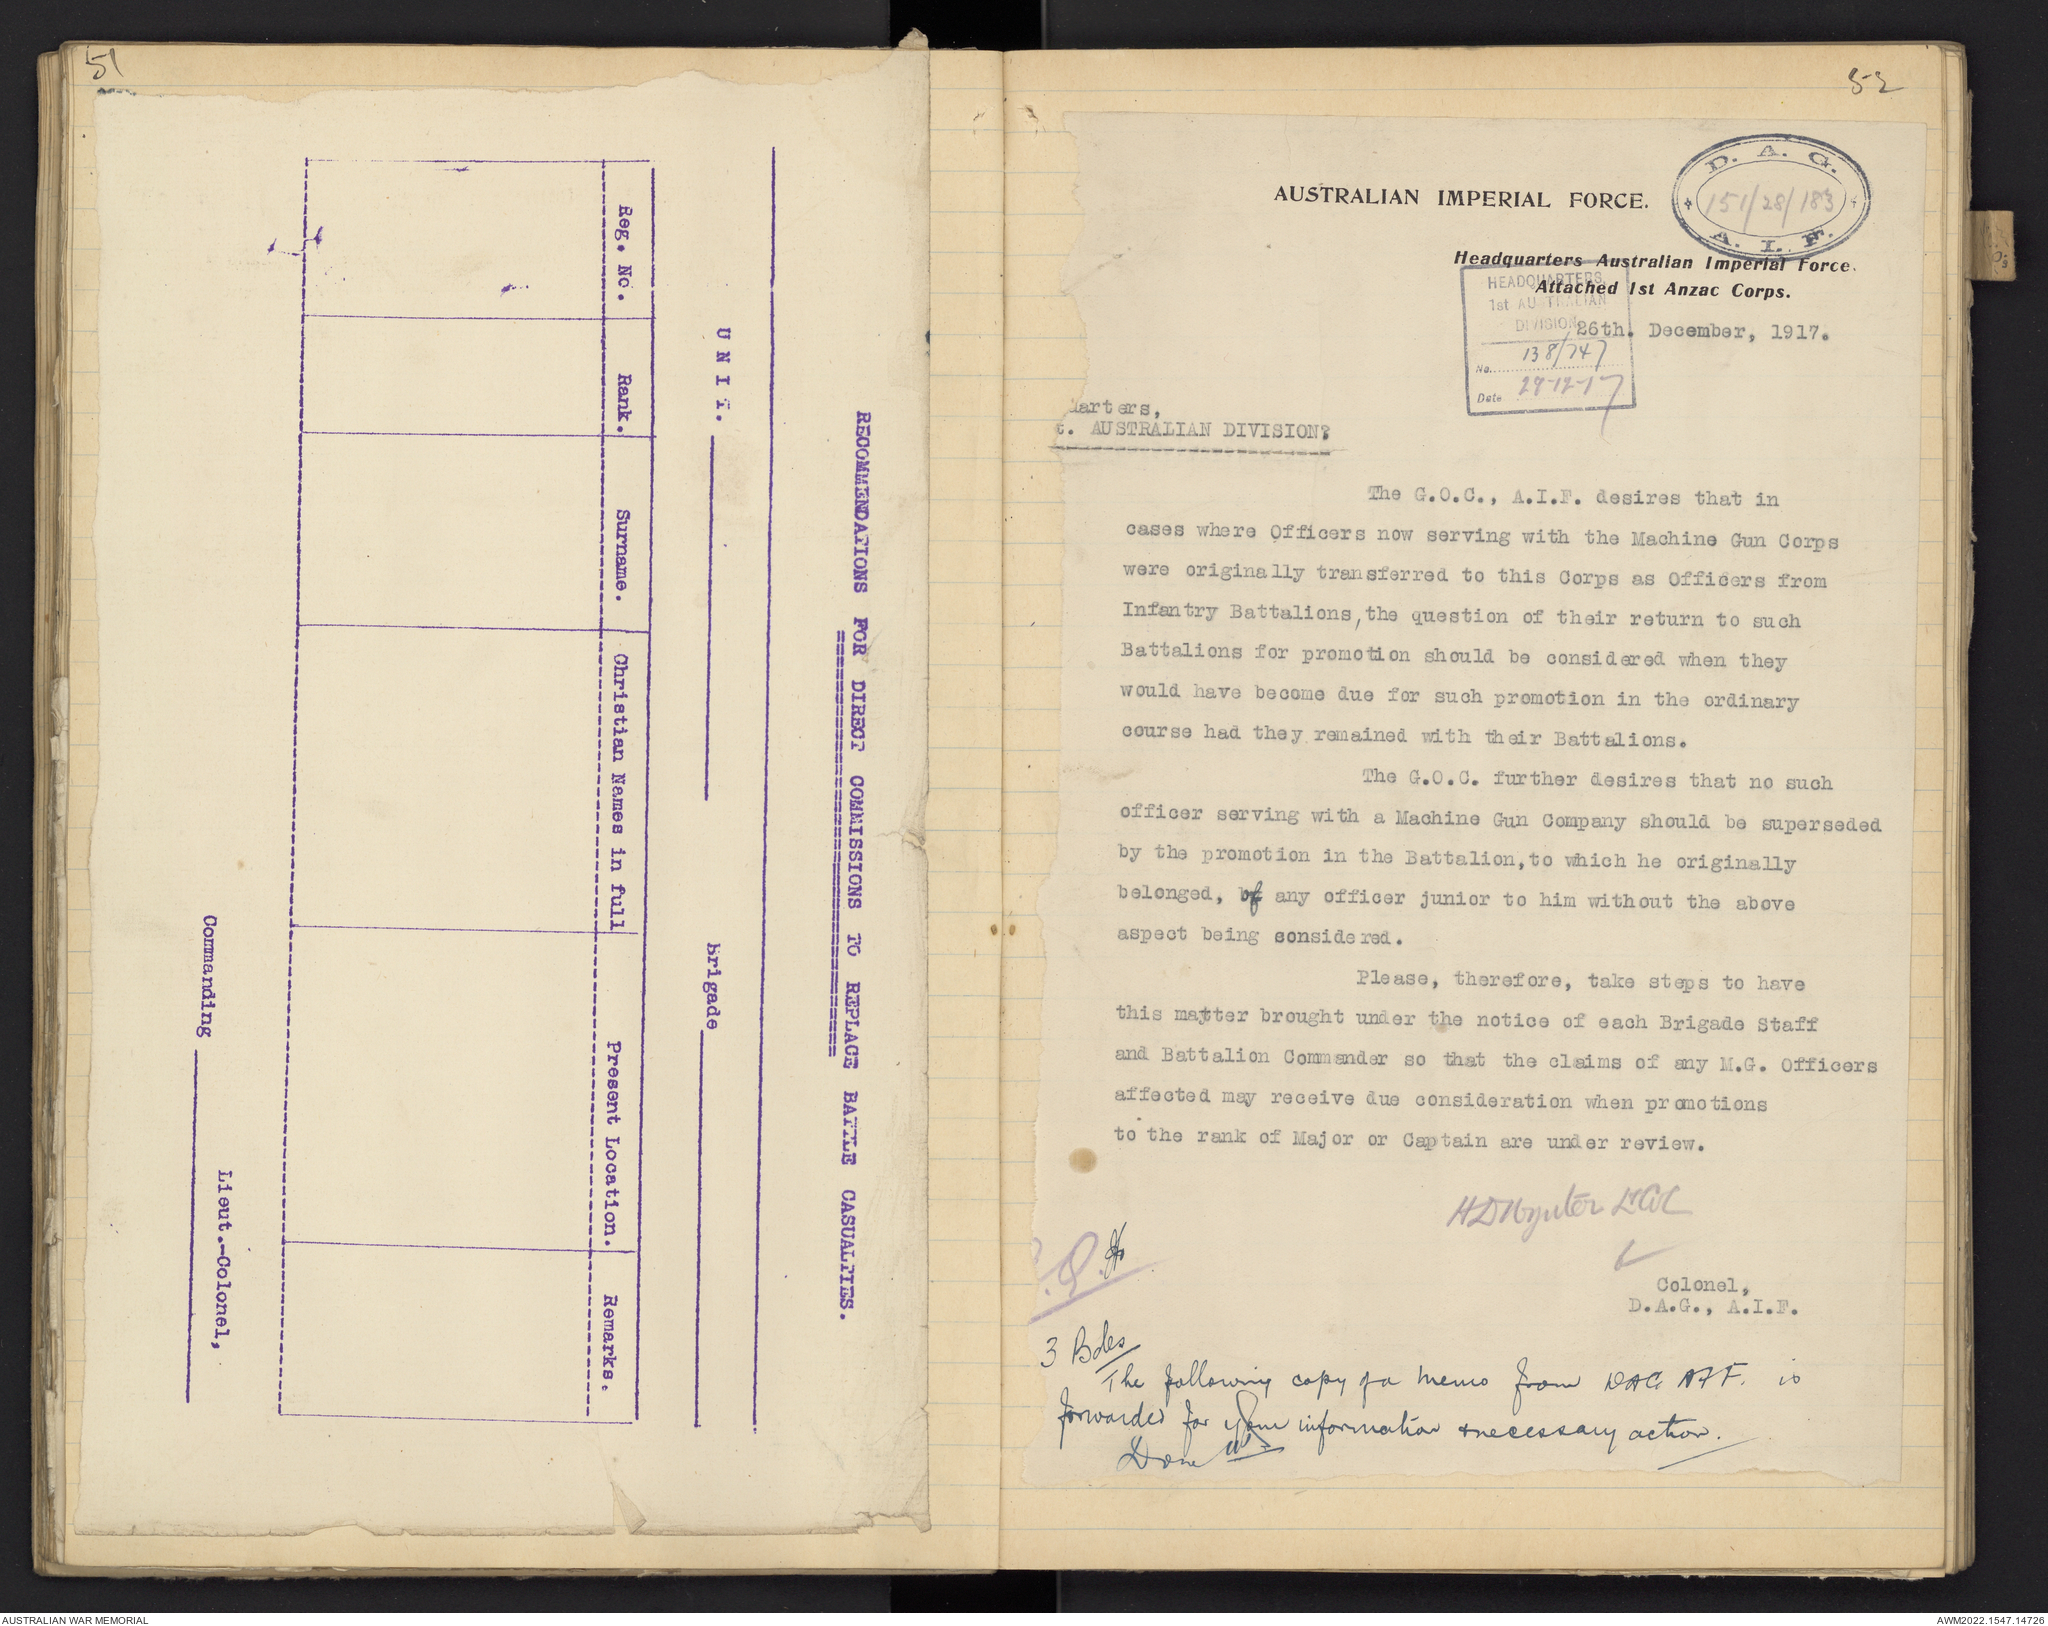 51
RECOMMENDATIONS FOR DIRECT COMMISSIONS TO REPLACE BATTLE CASUALTIES.
UNIT. Brigade
Reg. No. Rank. Surname. Christian Names in full Present Location. Remarks.
Lieut.-Colonel,
Commanding
52
D. A. G.
151/28/183
A. I. F.
AUSTRALIAN IMPERIAL FORCE.
Headquarters Australian Imperial Force.
Attached 1st Anzac Corps.
HEADQUARTERS,
1st AUSTRALIAN
DIVISION
No. 138/747
Date 27-12-17
26th. December, 1917.
uarters,
t. AUSTRALIAN DIVISION.
The G.O.C., A.I.F. desires that in
cases where Officers now serving with the Machine Gun Corps
were originally transferred to this Corps as Officers from
Infantry Battalions, the question of their return to such
Battalions for promotion should be considered when they
would have become due for such promotion in the ordinary
course had they remained with their Battalions.
The G.O.C. further desires that no such
officer serving with a Machine Gun Company should be superseded
by the promotion in the Battalion, to which he originally
belonged, of any officer junior to him without the above
aspect being considered.
Please, therefore, take steps to have
this matter brought under the notice of each Brigade Staff
and Battalion Commander so that the claims of any M.G. Officers
affected may receive due consideration when promotions
to the rank of Major or Captain are under review.
Colonel,
D.A.G., A.I.F.
3 Bdes
The following copy of a memo from DAG AIF. is
forwarded for your information & necessary action.
Done
AUSTRALIAN WAR MEMORIAL
AWM2022.1547.14726